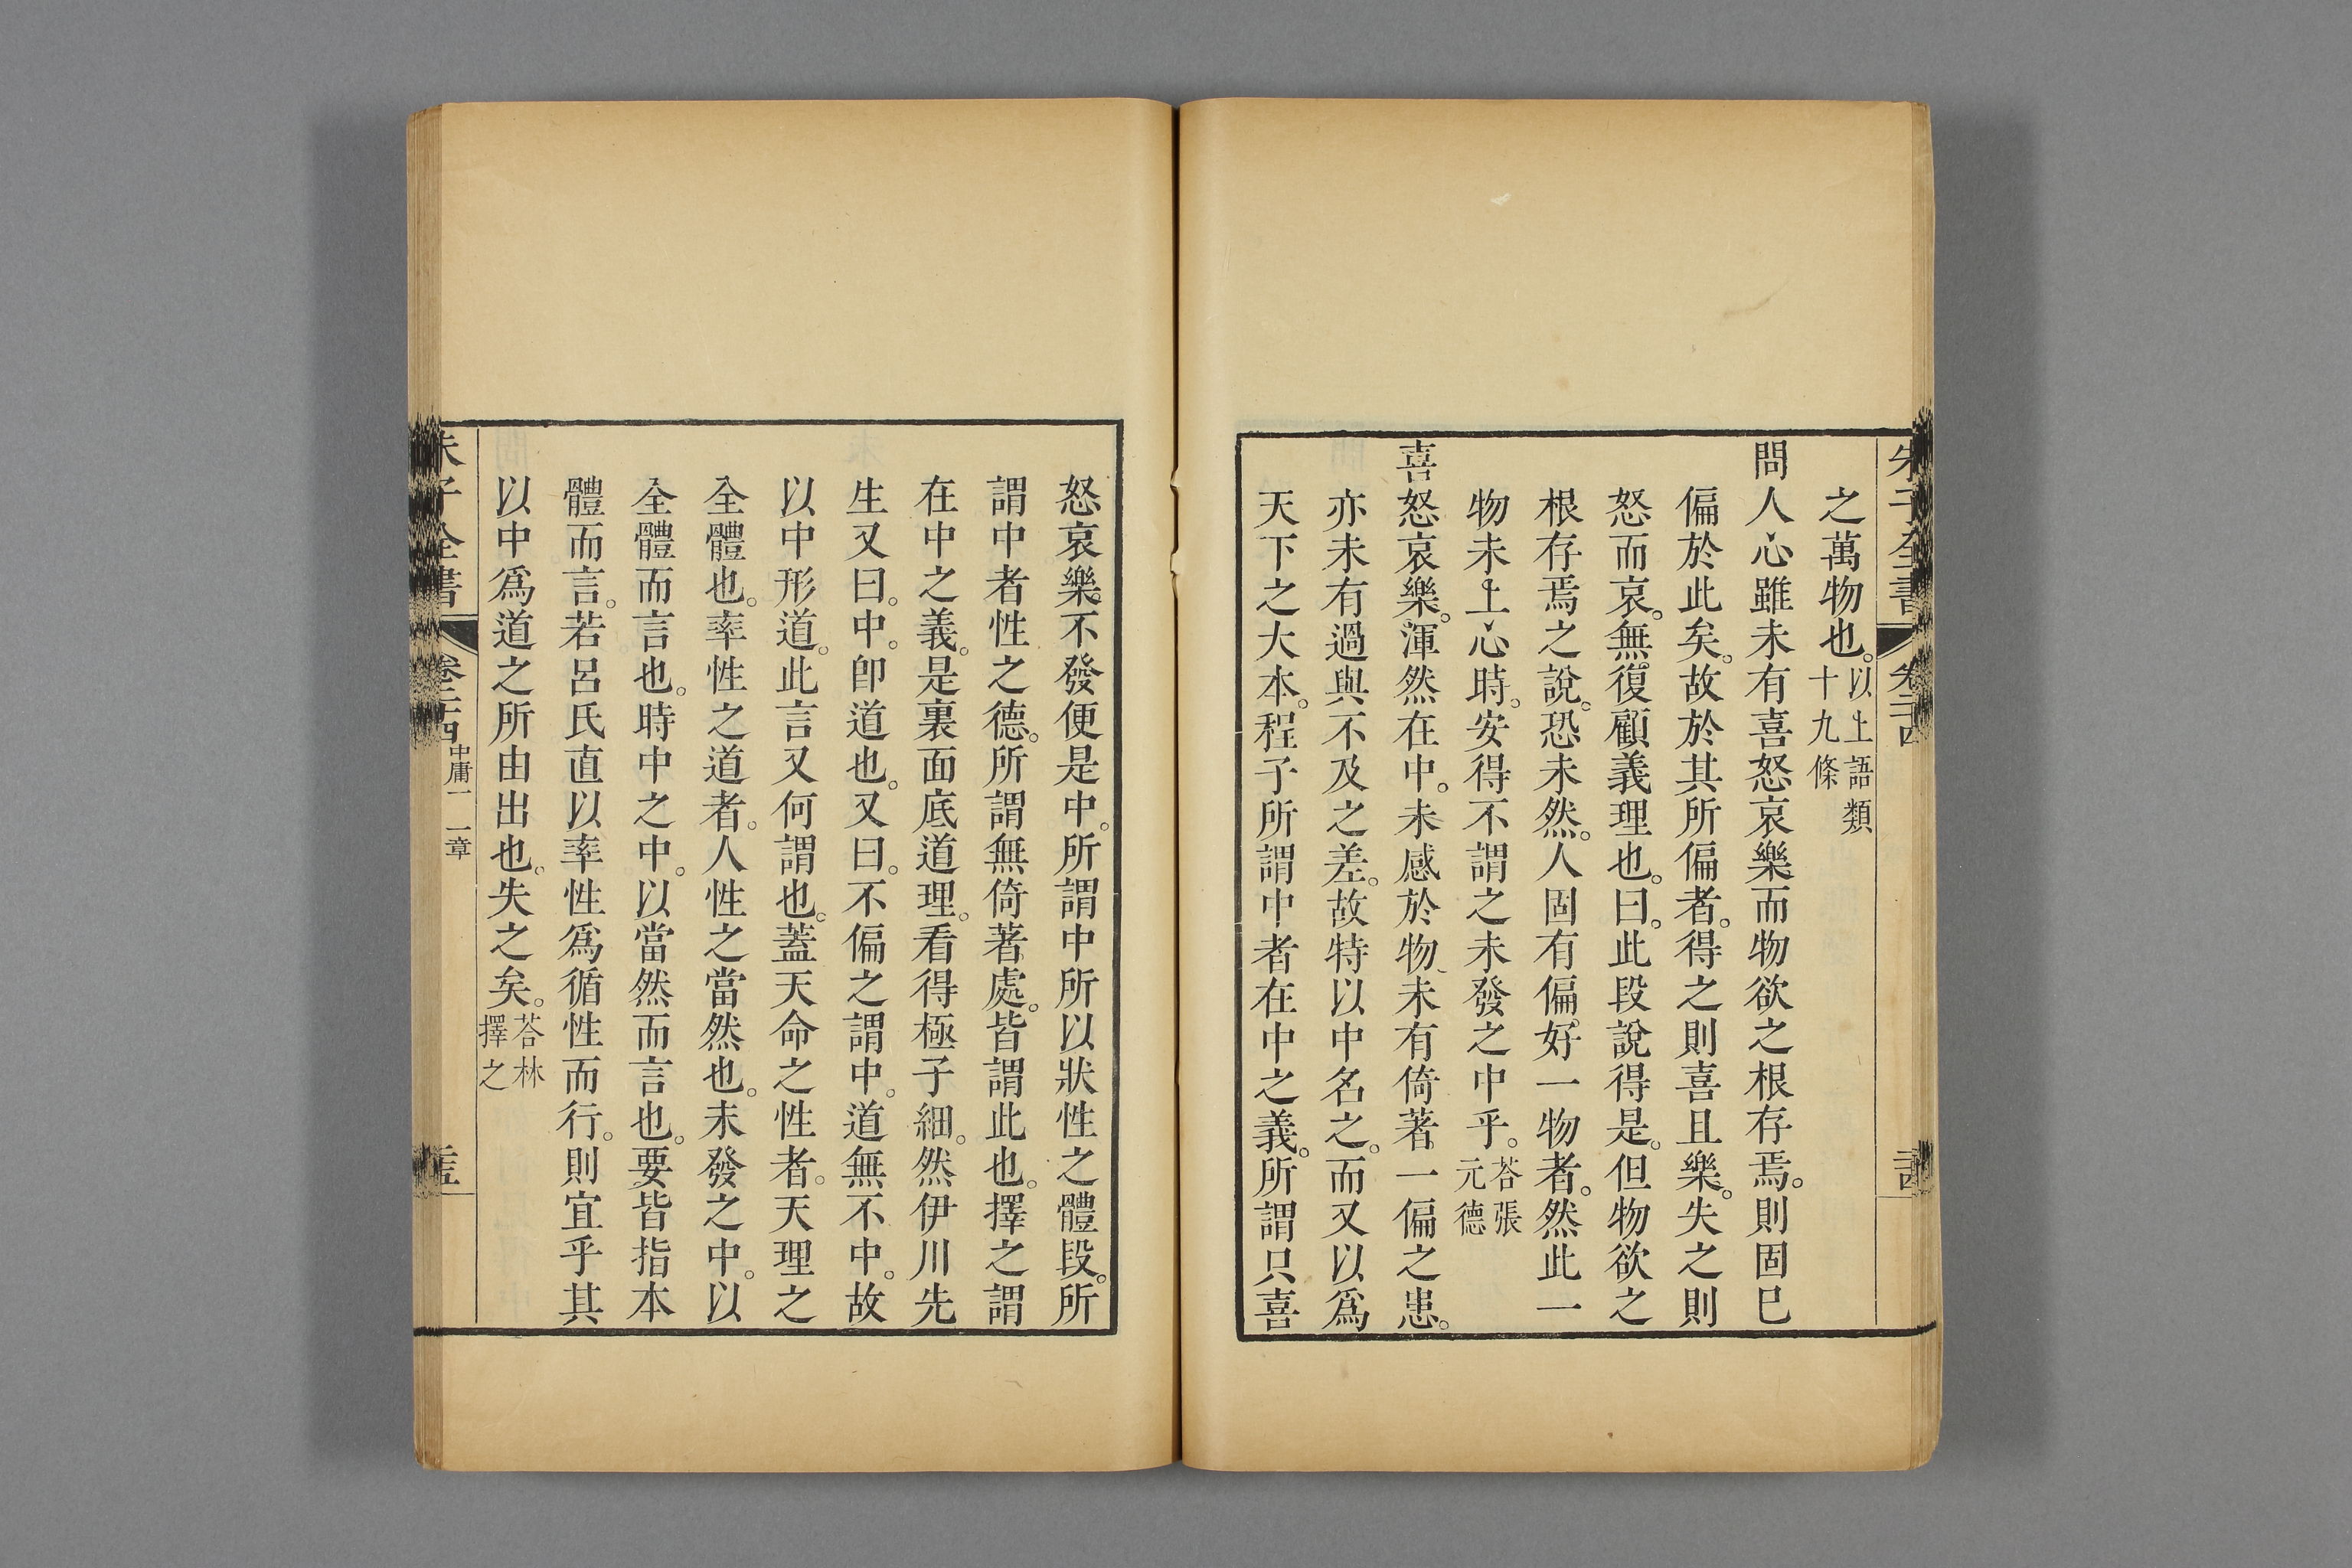 朱子全書 卷二十四
之萬物也。以上語類十九條
問人心雖未有喜怒哀樂而物欲之根存焉。則固已
偏於此矣。故於其所偏者。得之則喜且樂。失之則
怒而哀。無復顧義理也。曰。此段說得是。但物欲之
根存焉之說。恐未然。人固有偏好一物者。然此一
物未上心時。安得不謂之未發之中乎。荅張元德
喜怒哀樂。渾然在中。未感於物、未有倚著一偏之患。
亦未有過與不及之差。故特以中名之。而又以爲
天下之大本。程子所謂中者在中之義。所謂只喜
怒哀樂不發便是中。所謂中所以狀性之體段。所
謂中者性之德。所謂無倚著處。皆謂此也。擇之謂
在中之義。是裏面底道理。看得極子細。然伊川先
生又曰。中。卽道也。又曰。不偏之謂中。道無不中。故
以中形道。此言又何謂也。蓋天命之性者。天理之
全體也。率性之道者。人性之當然也。未發之中。以
全體而言也。時中之中。以當然而言也。要皆指本
體而言。若呂氏直以率性爲循性而行。則宜乎其
以中爲道之所由出也。失之矣。荅林擇之
朱子全書 卷二十四 中庸一 一章